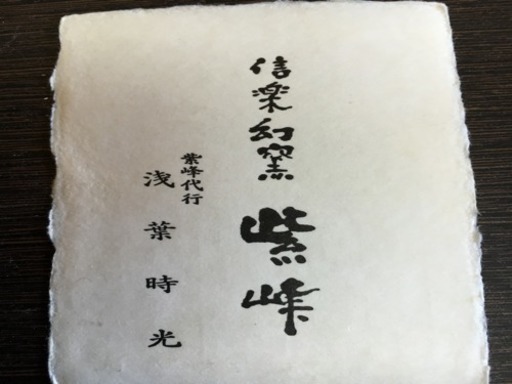 信楽幻窯 紫峰
紫峰代行
浅葉時光